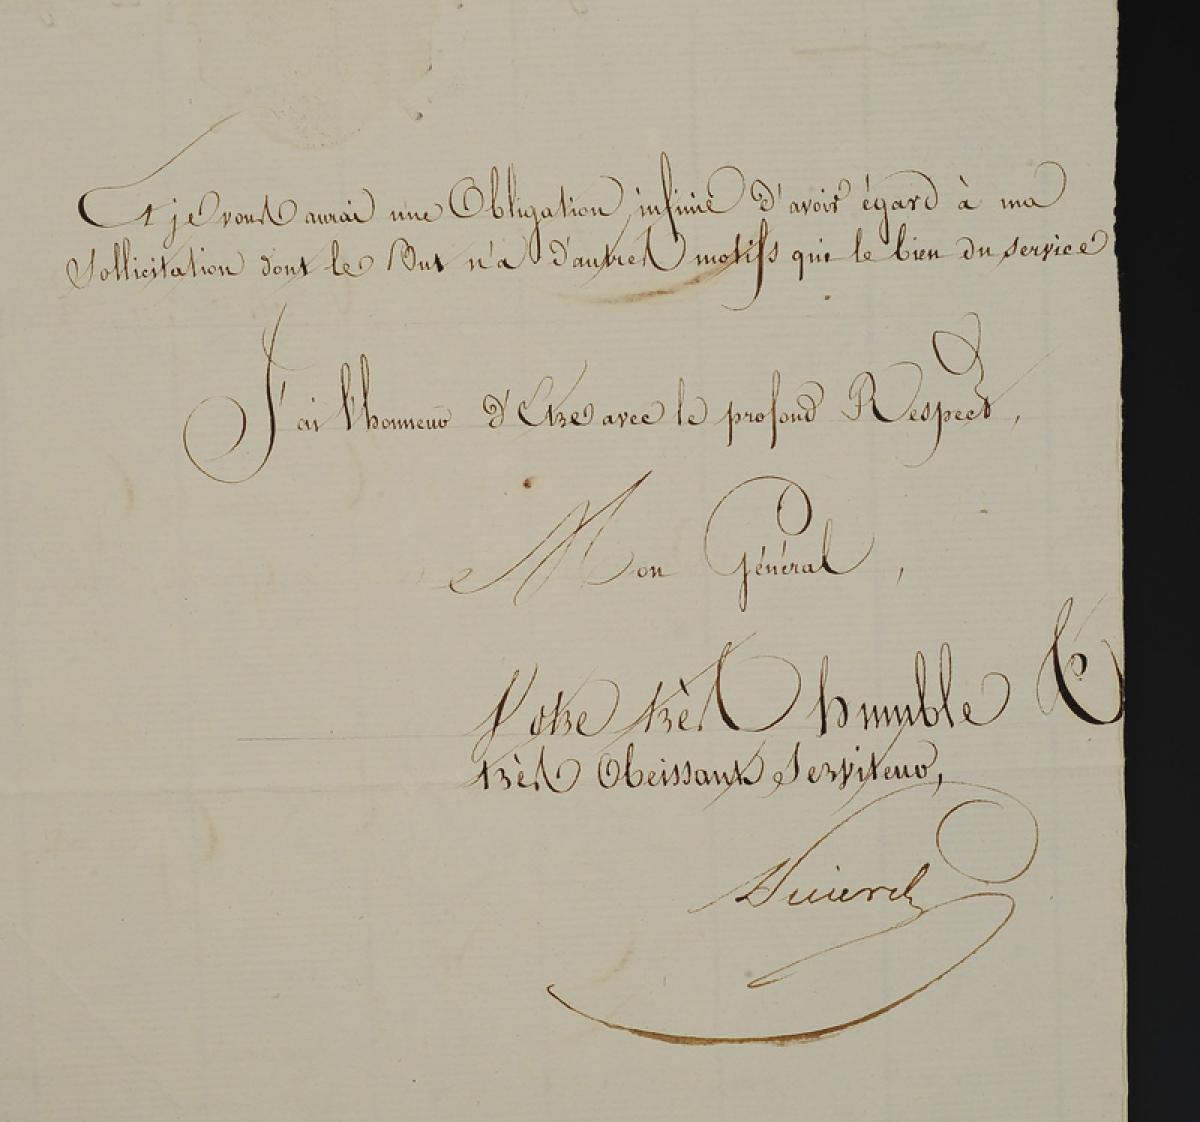 Et je vous aurai une Obligation infinie d'avoir égard à ma
Sollicitation dont le But n'a d'autres motifs que le bien du service
J'ai l'honneur d'Etre avec le profond Respect,
Mon Général,
Votre très humble &
très Obeissant Serviteur,